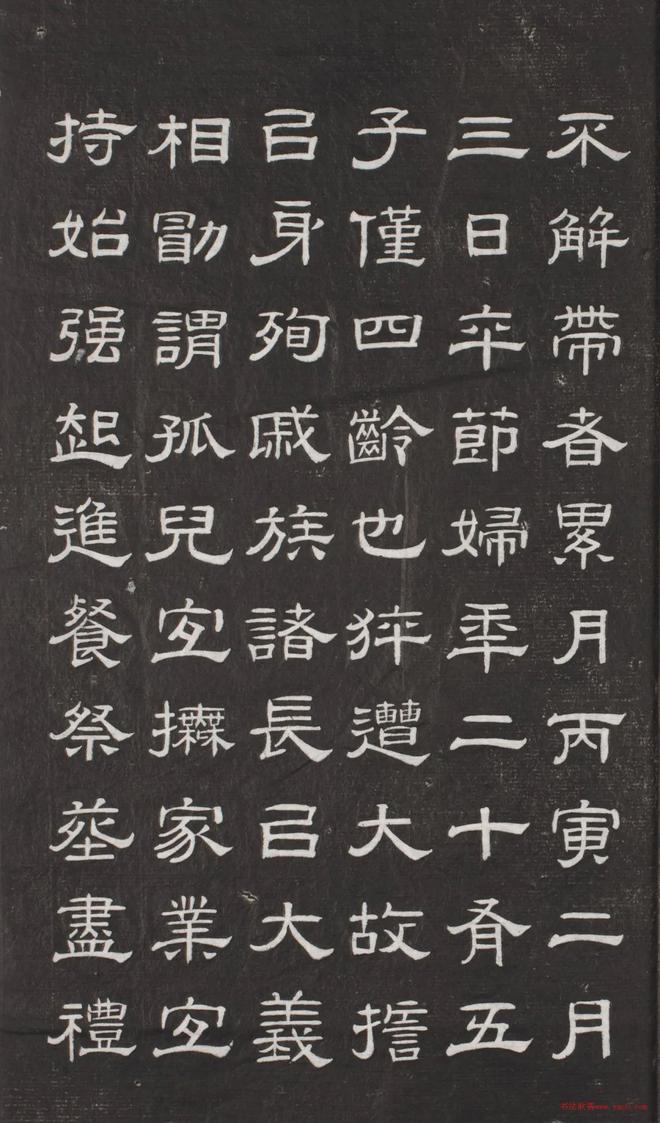 不解帶者累月丙寅二月
三日卒節婦年二十有五
子僅四齡也猝遭大故誓
㠯身殉戚族諸長㠯大義
相勖謂孤兒宜撫家業宜
持始强起進餐祭葬盡禮
书法欣赏www.yac8.com